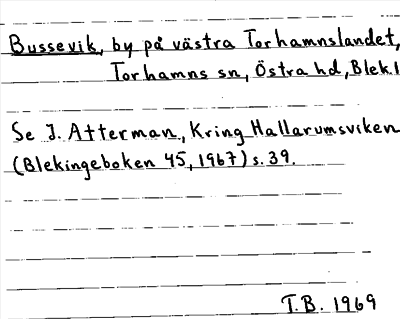 Bussevik, by på västra Torhamnslandet,
Torhamns sn, Östra hd, Blek.l
Se I. Atterman, Kring Hallarumsviken
(Blekingeboken 45, 1967) s. 39.
T.B. 1969